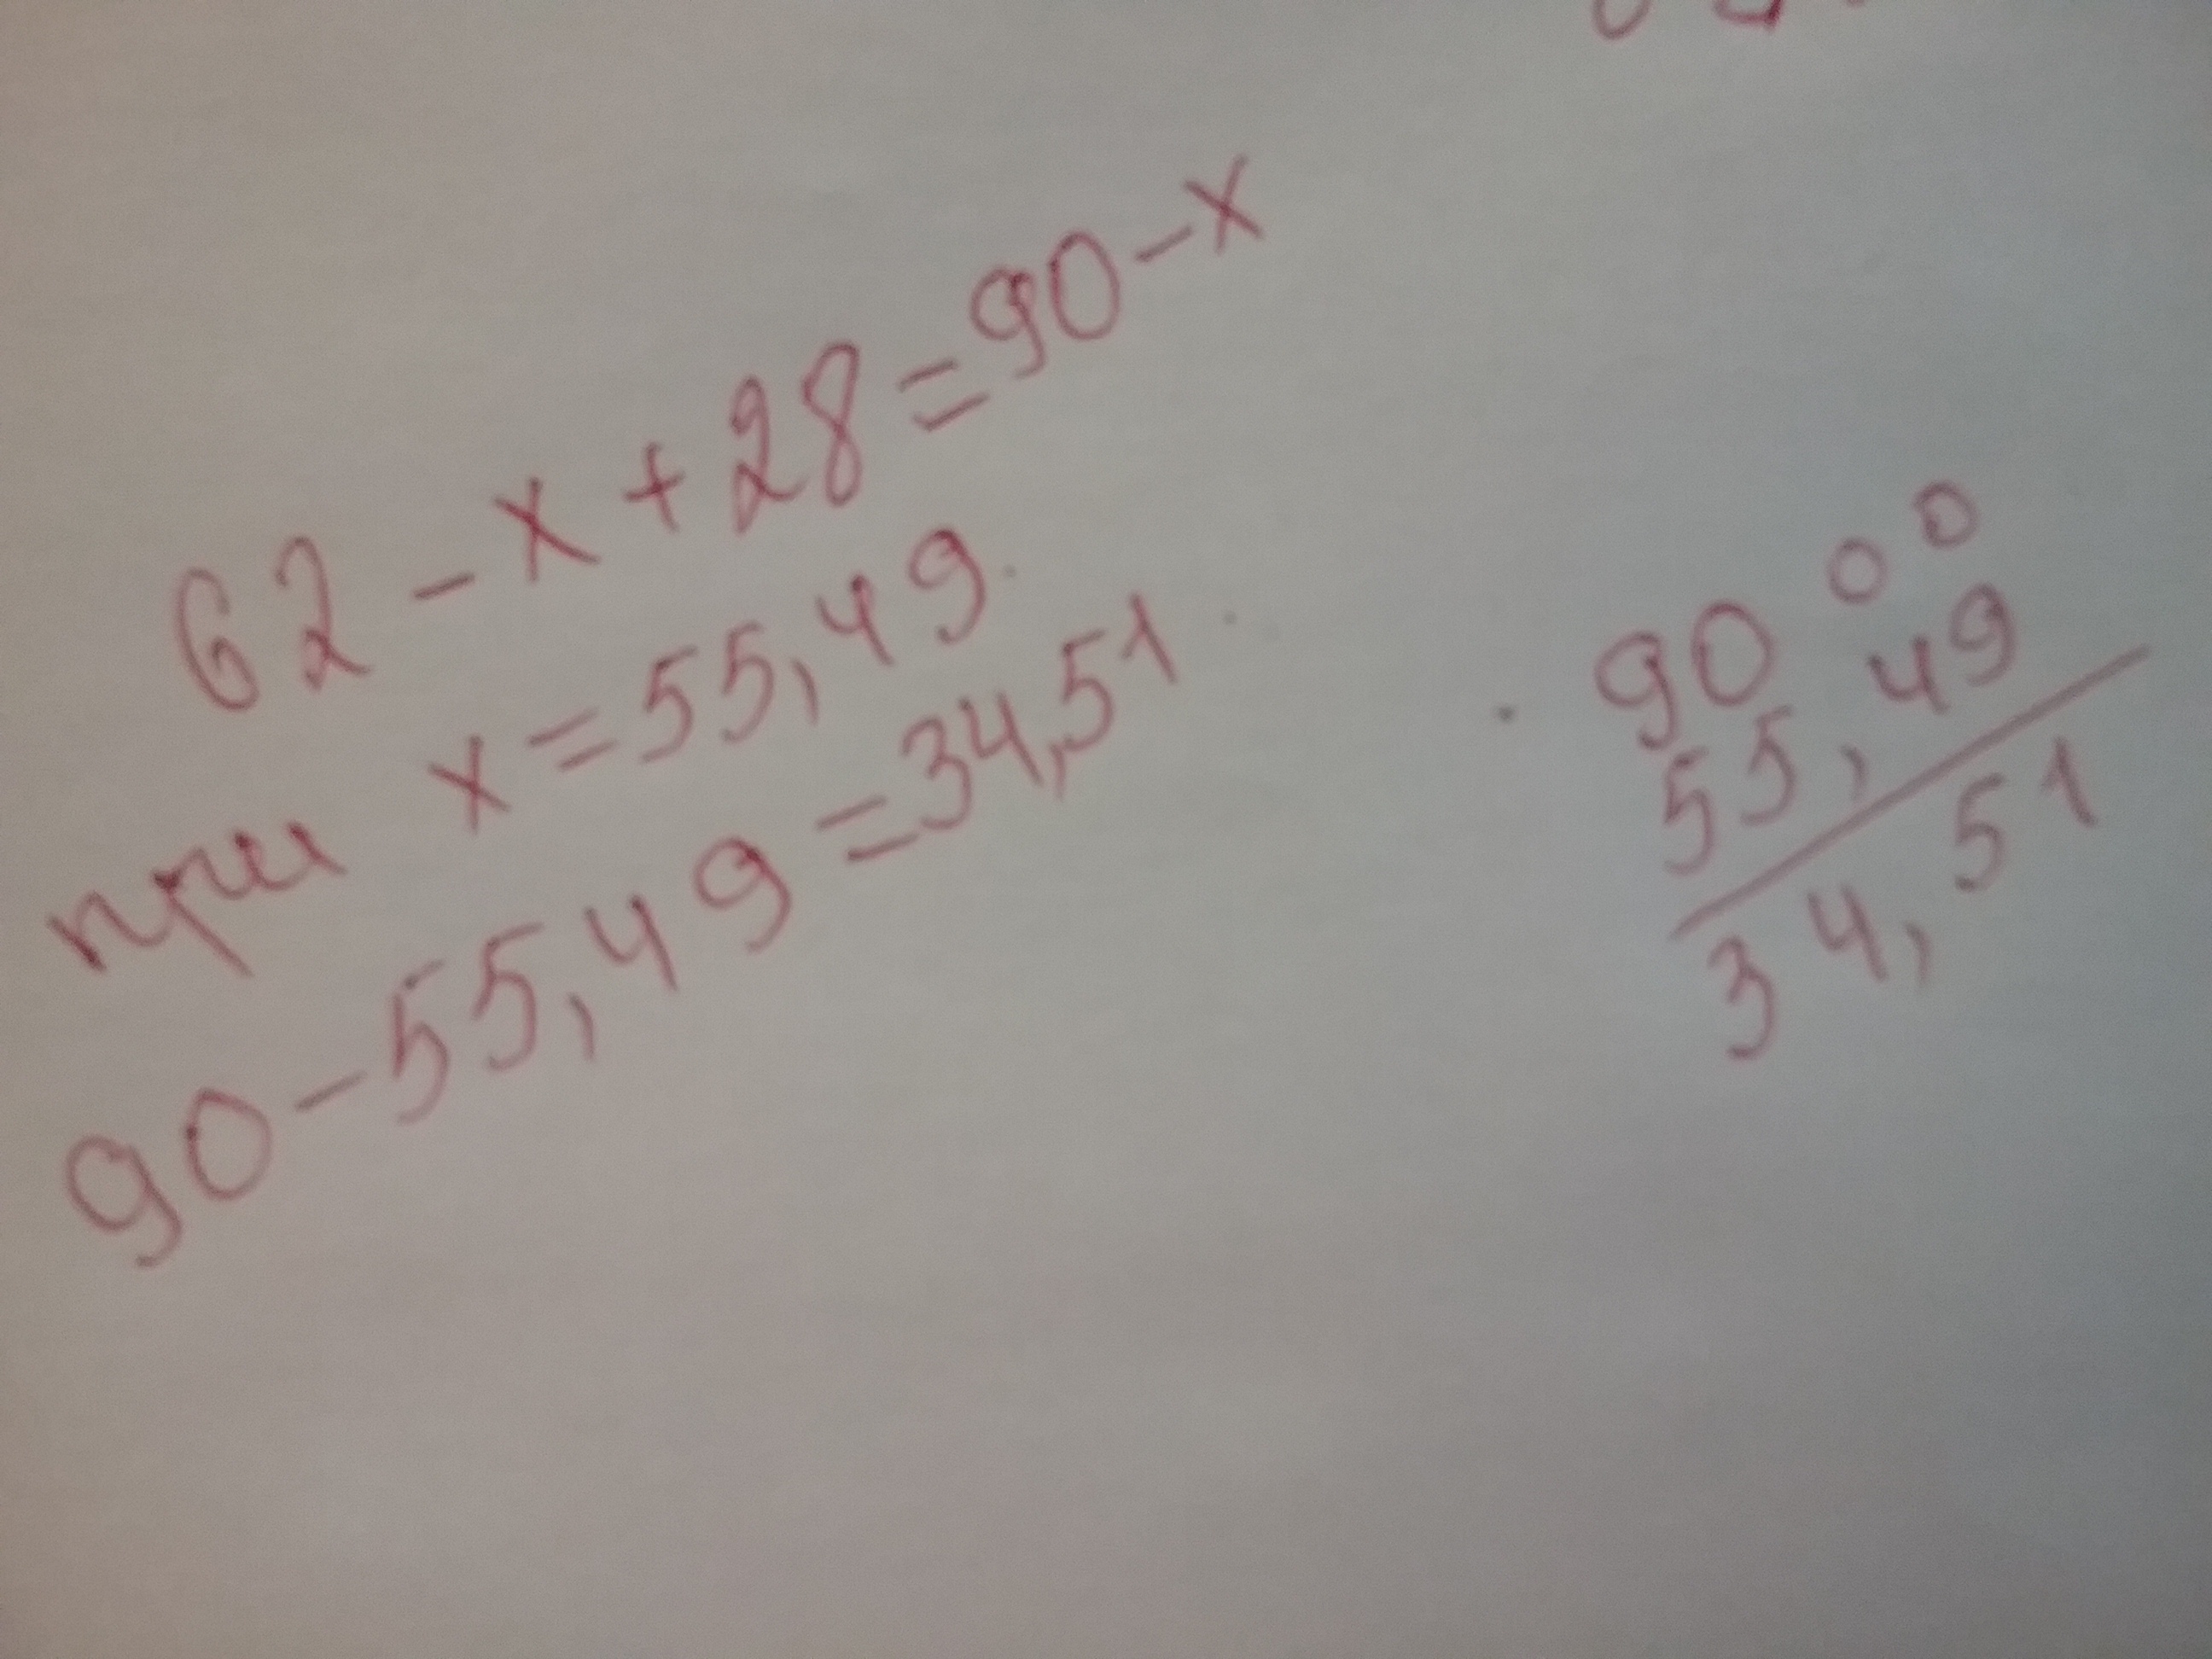 62 - x + 28 = 90 - x
при x = 55,49
90 - 55,49 = 34,51
90 00
55,49
34,51